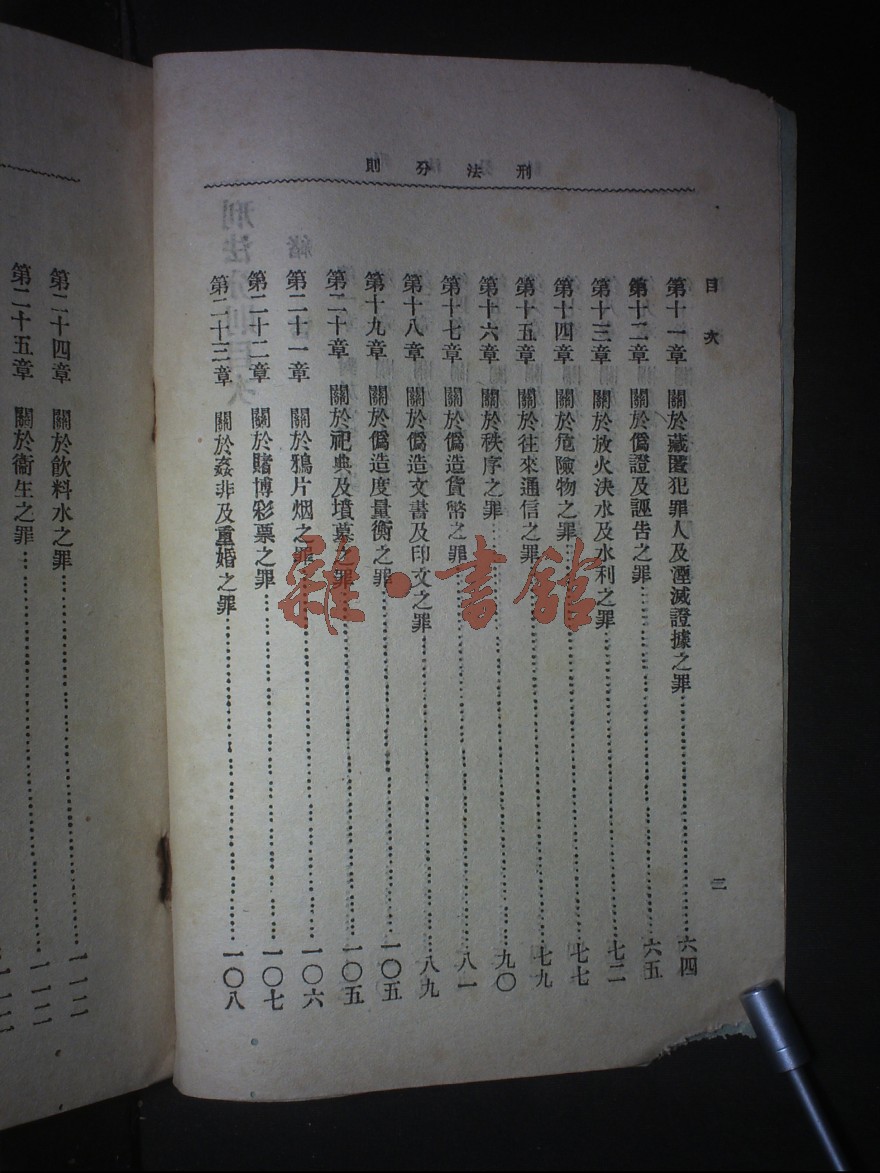 刑法分則
目次
二
第十一章 關於藏匿犯罪人及湮滅證據之罪……六四
第十二章 關於僞證及誣告之罪……六五
第十三章 關於放火決水及水利之罪……七二
第十四章 關於危險物之罪……七七
第十五章 關於往來通信之罪……七九
第十六章 關於秩序之罪……九〇
第十七章 關於僞造貨幣之罪……八一
第十八章 關於僞造文書及印文之罪……八九
第十九章 關於僞造度量衡之罪……一〇五
第二十章 關於祀典及墳墓之罪……一〇五
第二十一章 關於鴉片烟之罪……一〇六
第二十二章 關於賭博彩票之罪……一〇七
第二十三章 關於姦非及重婚之罪……一〇八
第二十四章 關於飲料水之罪……一一二
第二十五章 關於衞生之罪……一一二
雜·書館